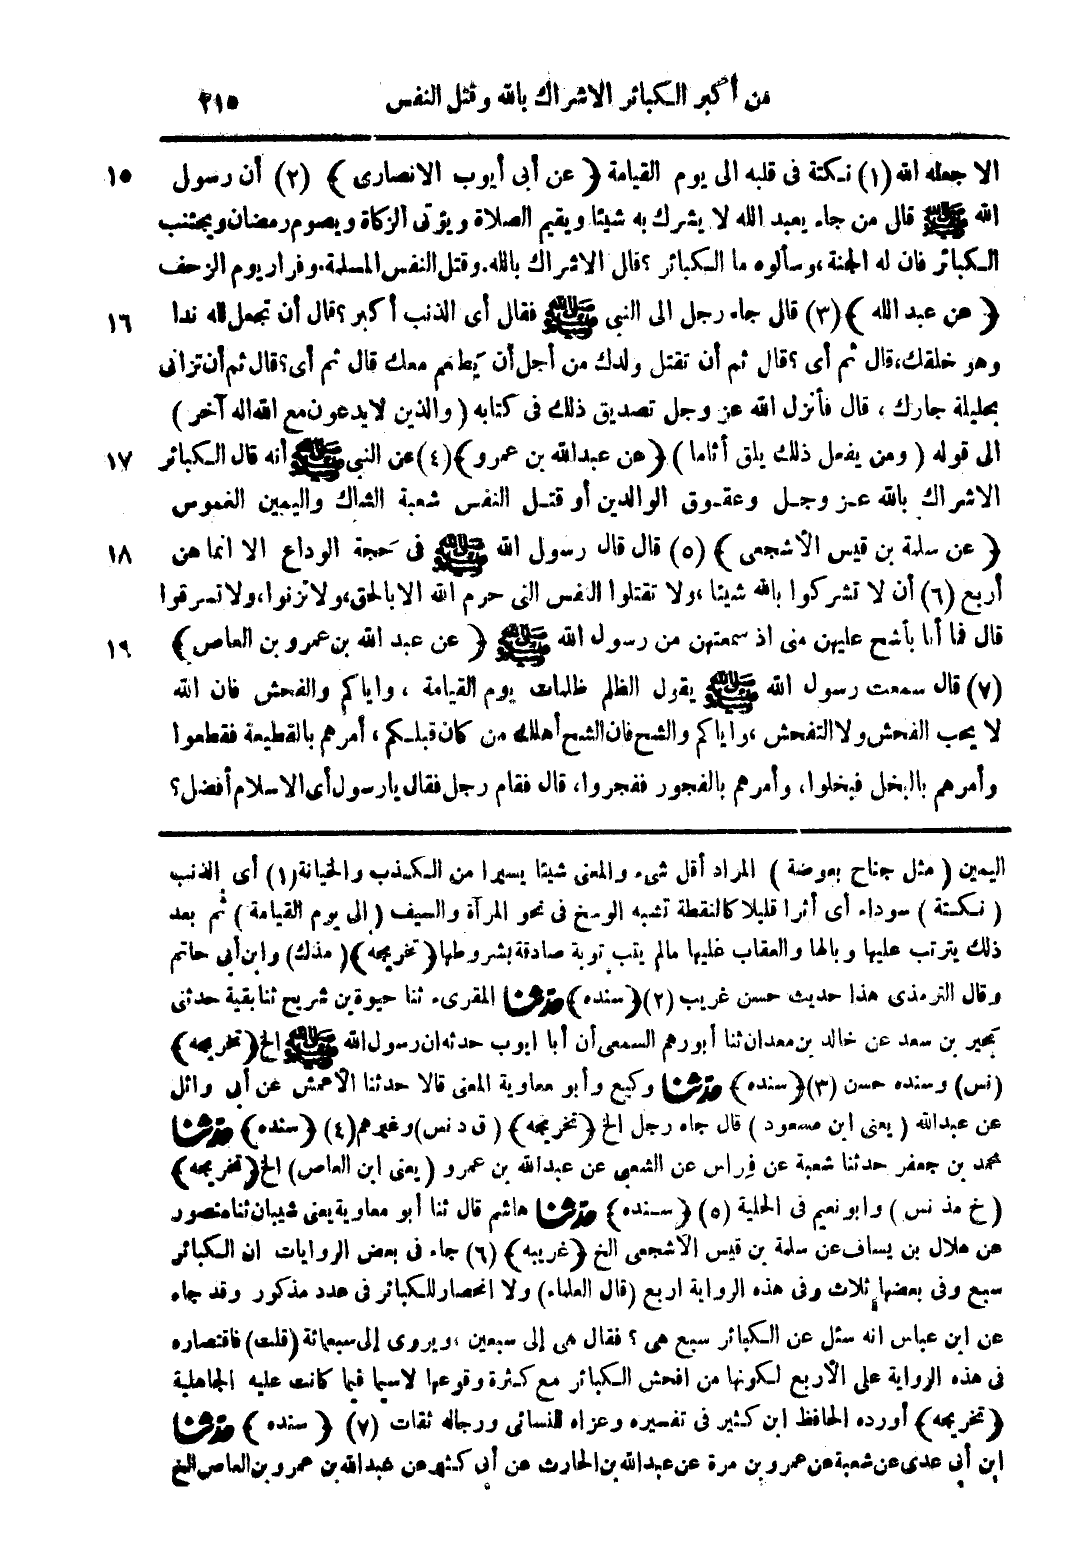 من أكبر الكبائر الاشراك بالله وقتل النفس ٢١٥
الا جعله الله (١) نكتة فى قلبه الى يوم القيامة ﴿ عن أبى أيوب الانصارى ﴾ (٢) أن رسول ١٥
الله ﷺ قال من جاء يعبد الله لا يشرك به شيئا ويقيم الصلاة ويؤتى الزكاة ويصوم رمضان ويجتنب
الكبائر فان له الجنة، وسألوه ما الكبائر ؟ قال الاشراك بالله. وقتل النفس المسلمة. وفرار يوم الزحف
﴿ عن عبد الله ﴾ (٣) قال جاء رجل الى النبى ﷺ فقال أى الذنب أكبر ؟ قال أن تجعل لله ندا ١٦
وهو خلقك، قال ثم أى ؟ قال ثم أن تقتل ولدك من أجل أن يَطعَم معك قال ثم أى ؟ قال ثم أن تزانى
بحليلة جارك ، قال فأنزل الله عز وجل تصديق ذلك فى كتابه ( والذين لا يدعون مع الله اله آخر )
الى قوله ( ومن يفعل ذلك يلق أثاما ) ﴿ عن عبدالله بن عمرو ﴾ (٤) عن النبى ﷺ أنه قال الكبائر ١٧
الاشراك بالله عز وجل وعقوق الوالدين أو قتل النفس شعبة الشاك واليمين الغموس
﴿ عن سلمة بن قيس الأشجعى ﴾ (٥) قال قال رسول الله ﷺ فى حَجة الوداع الا انما هن ١٨
أربع (٦) أن لا تشركوا بالله شيئا ، ولا تقتلوا النفس التى حرم الله الا بالحق، ولا تزنوا، ولا تسرقوا
قال فما أنا بأشح عليهن منى اذ سمعتهن من رسول الله ﷺ ﴿ عن عبد الله بن عمرو بن العاص ﴾ ١٩
(٧) قال سمعت رسول الله ﷺ يقول الظلم ظلمات يوم القيامة ، واياكم والفحش فان الله
لا يحب الفحش ولا التفحش ، واياكم والشح فان الشح أهلك من كان قبلكم ، أمرهم بالقطيعة فقطعوا
وأمرهم بالبخل فبخلوا، وأمرهم بالفجور ففجروا، قال فقام رجل فقال يا رسول أى الاسلام أفضل؟
اليمين ( مثل جناح بعوضة ) المراد أقل شىء والمعنى شيئا يسيرا من الكذب والخيانة (١) أى الذنب
( نكتة ) سوداء أى أثرا قليلا كالنقطة تشبه الوسخ فى نحو المرآة والسيف ( الى يوم القيامة ) ثم بعد
ذلك يترتب عليها وبالها والعقاب عليها مالم يتب توبة صادقة بشروطها ﴿ تخريجه ﴾ ( مذك) وابن أبى حاتم
وقال الترمذى هذا حديث حسن غريب (٢) ﴿ سنده ﴾ حدثنا المقرىء ثنا حيوة بن شريح ثنا بقية حدثنى
بحير بن سعد عن خالد بن معدان ثنا أبو رهم السمعى أن أبا ايوب حدثه ان رسول الله ﷺ الخ ﴿ تخريجه ﴾
(نس) وسنده حسن (٣) ﴿ سنده ﴾ حدثنا وكيع وأبو معاوية المعنى قالا حدثنا الأعمش عن أبى وائل
عن عبدالله ( يعنى ابن مسعود ) قال جاء رجل الخ ﴿ تخريجه ﴾ ( ق د نس) وغيرهم (٤) ﴿ سنده ﴾ حدثنا
محمد بن جعفر حدثنا شعبة عن فِراس عن الشعبى عن عبدالله بن عمرو ( يعنى ابن العاص) الخ ﴿ تخريجه ﴾
( خ مذ نس ) وابو نعيم فى الحلية (٥) ﴿ سنده ﴾ حدثنا هاشم قال ثنا أبو معاوية يعنى شيبان ثنا منصور
عن هلال بن يساف عن سلمة بن قيس الأشجعى الخ ﴿ غريبه ﴾ (٦) جاء فى بعض الروايات ان الكبائر
سبع وفى بعضها ثلاث وفى هذه الرواية اربع (قال العلماء) ولا انحصار للكبائر فى عدد مذكور وقد جاء
عن ابن عباس انه سئل عن الكبائر سبع هى ؟ فقال هى إلى سبعين ، ويروى إلى سبعمائة (قلت) فاقتصاره
فى هذه الرواية على الأربع لكونها من افحش الكبائر مع كثرة وقوعها لاسيما فيما كانت عليه الجاهلية
﴿ تخريجه ﴾ أورده الحافظ ابن كثير فى تفسيره وعزاه للنسائى ورجاله ثقات (٧) ﴿ سنده ﴾ حدثنا
ابن أبى عدى عن شعبة عن عمرو بن مرة عن عبدالله بن الحارث عن أبى كثير عن عبدالله بن عمرو بن العاص الخ